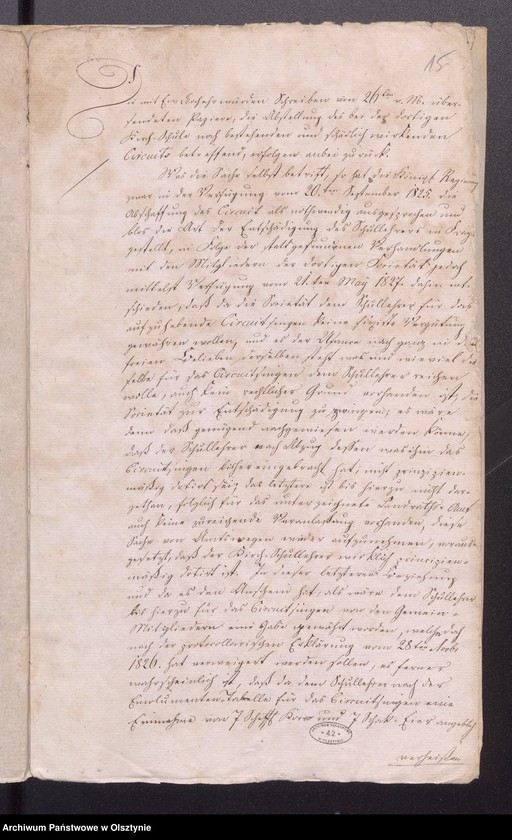 15
Die mit Ew. Hochehrwürden Schreiben vom 26ten v. M. über-
sendeten Papiere, die Abstellung des bei der dortigen
Kirch-Schule noch bestehenden und schädlich wirkenden
Circuits betreffend, erfolgen anbei zurück.
Was die Sache selbst betrifft, so hat die Königl. Regierung
zwar in der Verfügung vom 20ten September 1825. die
Abschaffung des Circuit als nothwendig ausgesprochen und
blos die Art der Entschädigung des Schullehrers in Frage
gestellt, in Folge der stattgefundenen Verhandlungen
mit den Mitgliedern der dortigen Societät jedoch
mittelst Verfügung vom 21ten May 1827. dahin ent-
schieden, daß da die Societät dem Schullehrer für das
aufzuhebende Circuitsingen keine fixirte Vergütung
gewähren wollen, und es der Usance nach ganz in dem
freien Belieben derselben steht was und wie viel die-
selbe für das Circuitsingen dem Schullehrer reichen
wolle, auch kein rechtlicher Grund vorhanden ist, die
Societät zur Entschädigung zu zwingen; es wäre
denn daß genügend nachgewiesen werden könne,
daß der Schullehrer nach Abzug dessen was ihm das
Circuitsingen bisher eingebracht hat, nicht prinzipien-
mäßig dotirt sei; das letztere ist bis hierzu nicht dar-
gethan, folglich für das unterzeichnete Landräthl. Amt
auch keine zureichende Veranlassung vorhanden, diese
Sache von Amtswegen wieder aufzunehmen, voraus-
gesetzt, daß der Kirch-Schullehrer wirklich principien-
mäßig dotirt ist. In dieser letzteren Beziehung
und da es den Anschein hat, als wäre dem Schullehrer
bis hierzu für das Circuitsingen von den Gemein-
Mitgliedern eine Gabe gewährt worden, welche doch
nach der protocollarischen Erklärung vom 28ten
1826. hat verweigert werden sollen, es ferner
wahrscheinlich ist, daß da dem Schullehrer nach der
Emolumenten-Tabelle für das Circuitsingen eine
Einnahme von 7 Scheffl Korn und 7 Schock Eier angeblich
42
verheißen
Archiwum Państwowe w Olsztynie